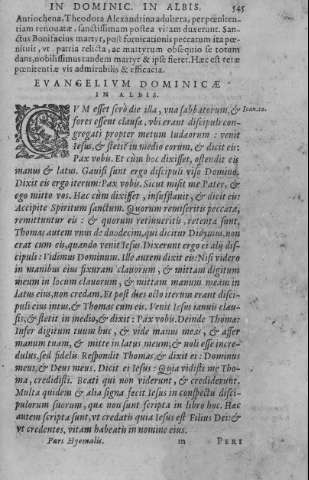 IN DOMINIC. IN ALBIS. 545
Antiochena. Theodora Alexandrina adultera, per pœniten-
tiam renouatæ, sanctissimam postea vitam duxerunt. San-
ctus Bonifacius martyr, post fornicationis peccatum ita pœ-
nituit, vt patria relicta, ac martyrum obsequio se totum
dans, nobilissimus tandem martyr & ipse fieret. Hæc est veræ
pœnitentiæ vis admirabilis & efficacia.
EVANGELIVM DOMINICÆ
IN ALBIS.
CVM esset serò die illa, vna sabbatorum, & Ioan. 20.
fores essent clausæ, vbi erant discipuli con-
gregati propter metum Iudæorum: venit
Iesus, & stetit in medio eorum, & dicit eis:
Pax vobis. Et cùm hoc dixisset, ostendit eis
manus & latus. Gauisi sunt ergo discipuli viso Domino.
Dixit eis ergo iterum: Pax vobis. Sicut misit me Pater, &
ego mitto vos. Hæc cùm dixisset, insufflauit, & dicit eis:
Accipite Spiritum sanctum. Quorum remiseritis peccata,
remittuntur eis: & quorum retinueritis, retenta sunt.
Thomas autem vnus de duodecim, qui dicitur Didymus, non
erat cum eis, quando venit Iesus. Dixerunt ergo ei alij disci-
puli: Vidimus Dominum. Ille autem dixit eis: Nisi videro
in manibus eius fixuram clauorum, & mittam digitum
meum in locum clauorum, & mittam manum meam in
latus eius, non credam. Et post dies octo iterum erant disci-
puli eius intus, & Thomas cum eis. Venit Iesus ianuis clau-
sis, & stetit in medio, & dixit: Pax vobis. Deinde Thomæ:
Infer digitum tuum huc, & vide manus meas, & affer
manum tuam, & mitte in latus meum, & noli esse incre-
dulus, sed fidelis. Respondit Thomas, & dixit ei: Dominus
meus, & Deus meus. Dicit ei Iesus: Quia vidisti me Tho-
ma, credidisti. Beati qui non viderunt, & crediderunt.
Multa quidem & alia signa fecit Iesus in conspectu disci-
pulorum suorum, quæ non sunt scripta in libro hoc. Hæc
autem scripta sunt, vt credatis quia Iesus est Filius Dei: &
vt credentes, vitam habeatis in nomine eius.
Pars Hyemalis. m PERI